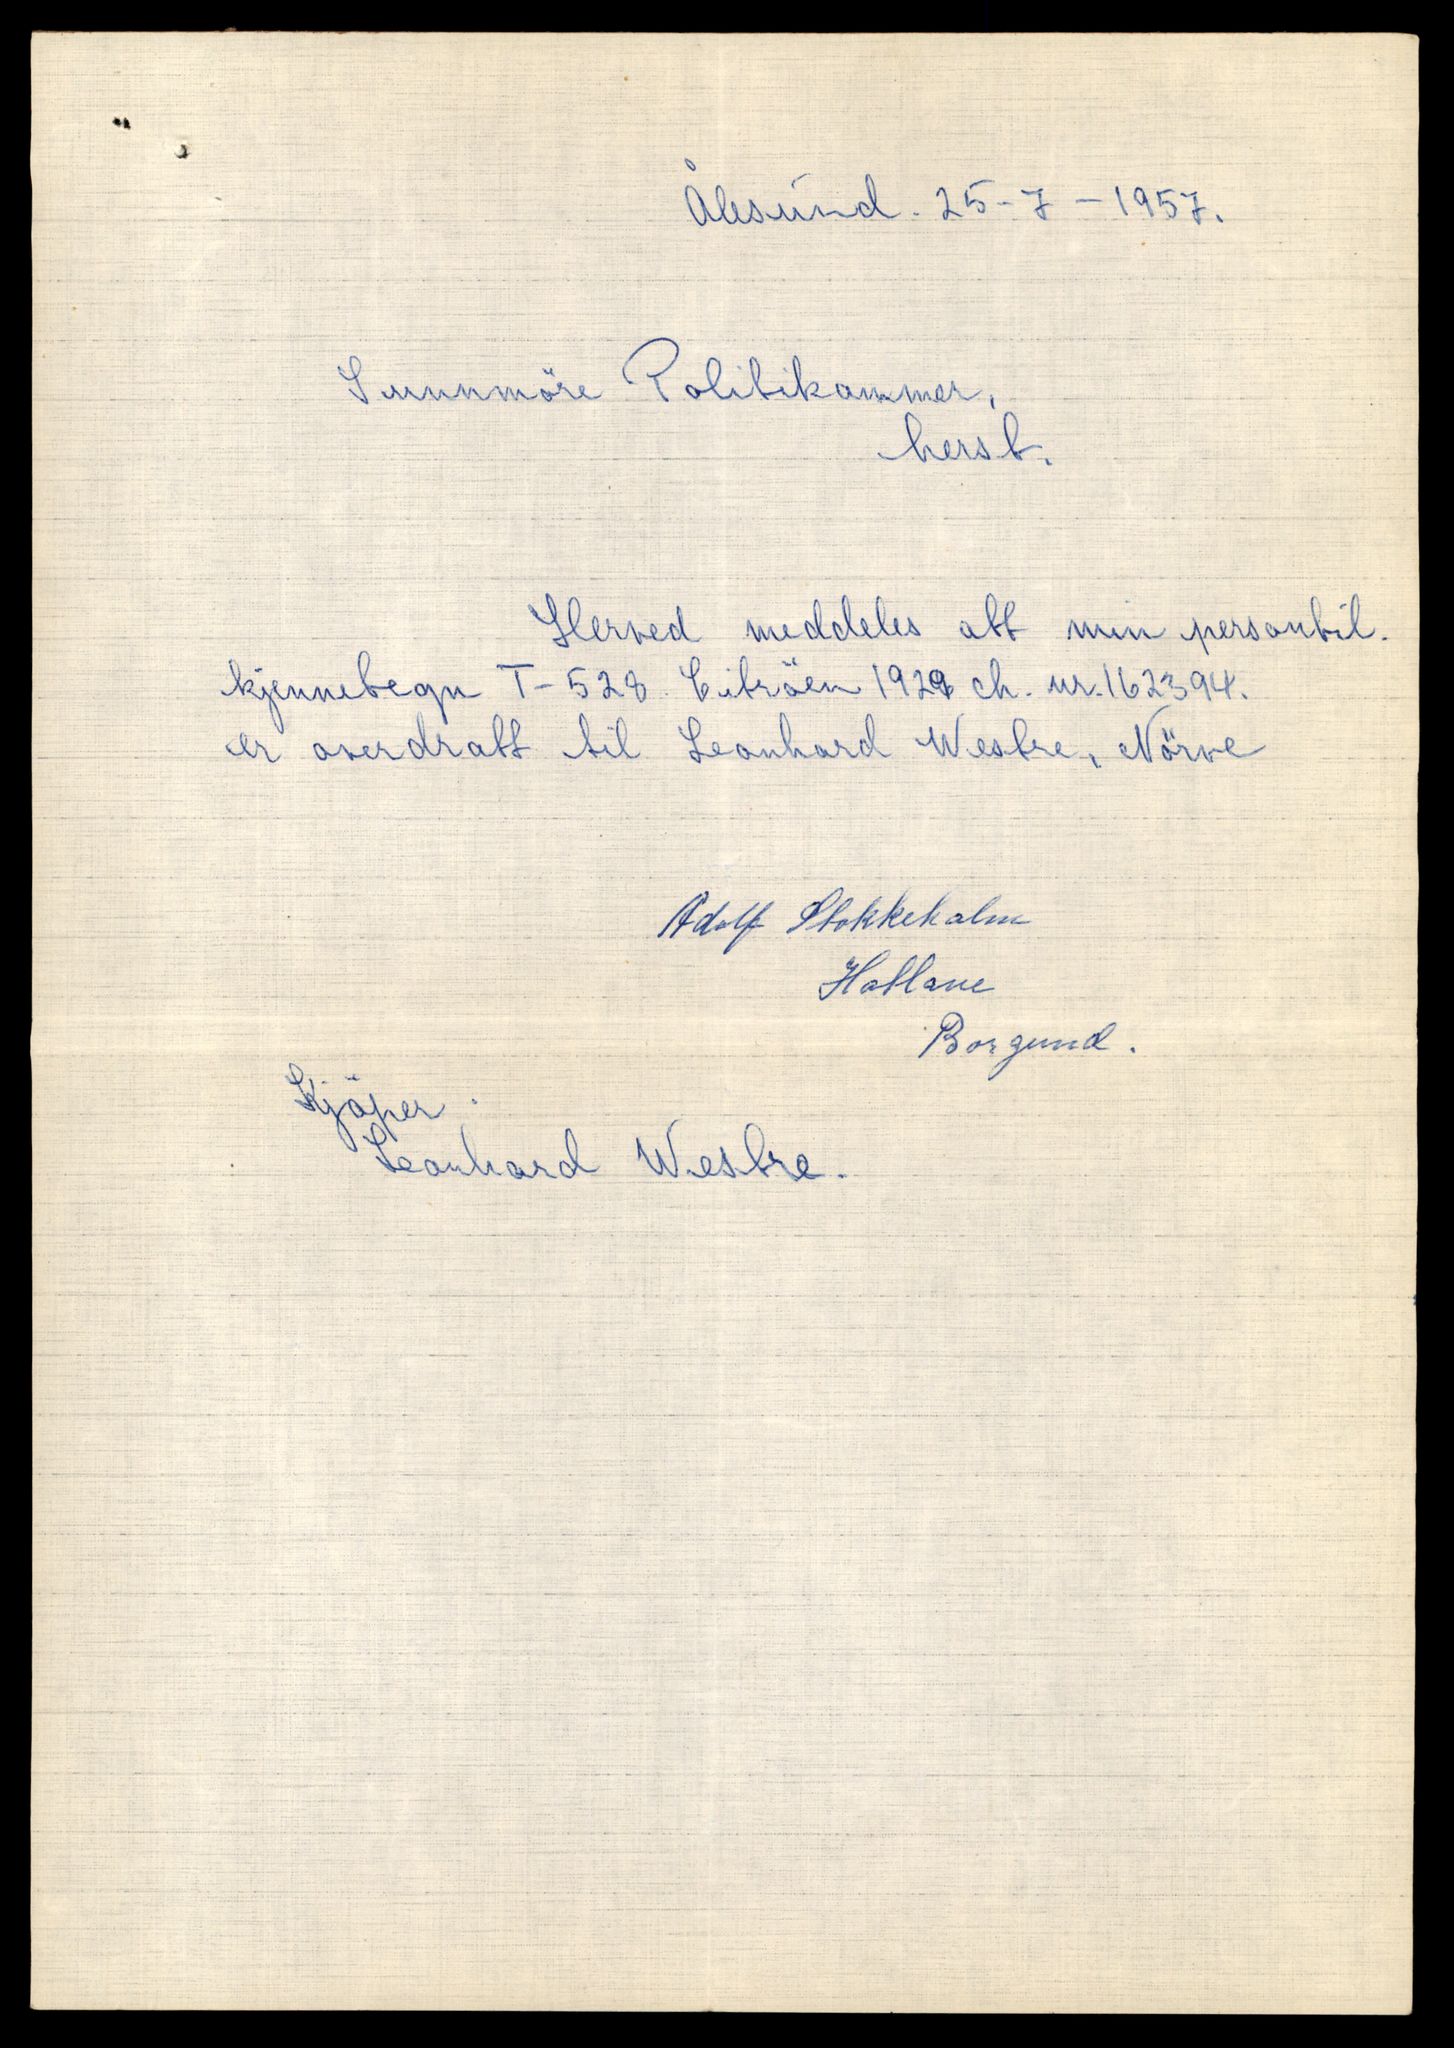 Ålesund. 25-7-1957.
Sunnmöre Politikammer,
herst.
Herved meddeles att min personbil.
kjennetegn T-528. Citröen 1929 ch. nr. 162394.
er overdratt til Leonhard Westre, Nörve
Adolf Stokkeholm
Hatlane
Borgund.
Kjöper.
Leonhard Westre.